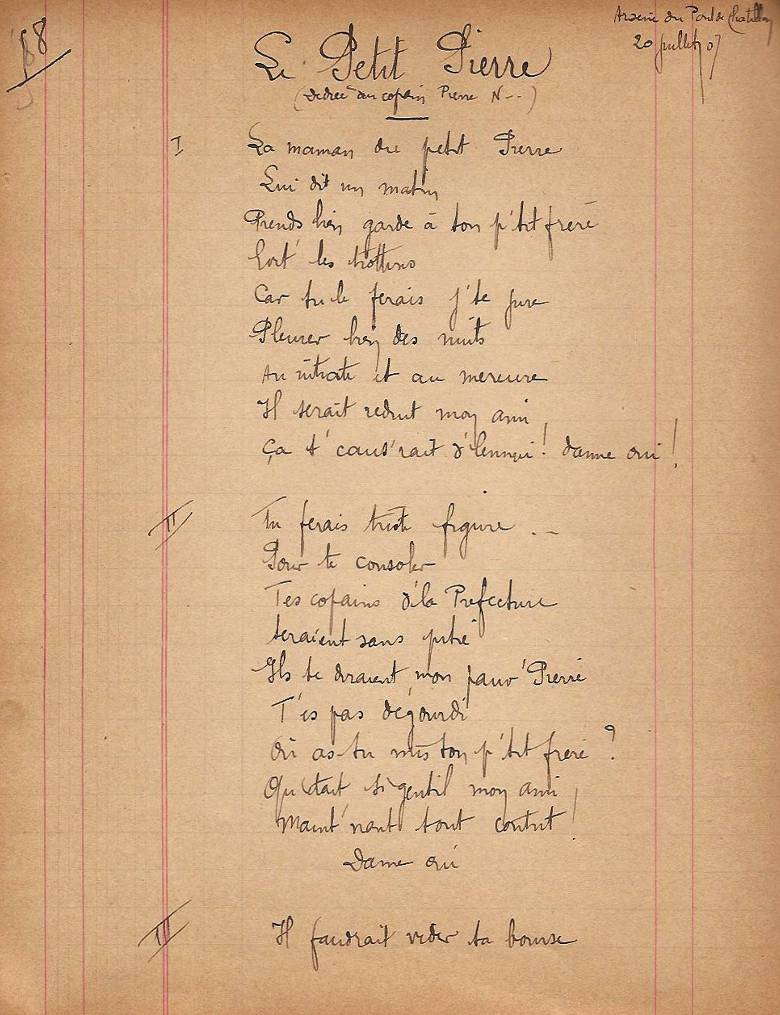 88
Arsène du Pont de Chatillon
20 juillet 07
Le Petit Pierre
(Dédiée au copain Pierre N--)
I
La maman du petit Pierre
Lui dit un matin
Prends bien garde à ton p'tit frère
Evit' les trottins
Car tu le ferais j'te jure
Pleurer bien des nuits
Au nitrate et au mercure
Il serait réduit mon ami
Ça t' caus'rait d'lennui! dame oui!
II
Tu ferais triste figure --
Pour te consoler
Tes copains d'la Préfecture
Seraient sans pitié
Ils te diraient mon pauv' Pierre
T'es pas dégourdi
Où as-tu mis ton p'tit frère ?
Qu'était si gentil mon ami,
Maint'nant tout contrit!
Dame oui
III
Il faudrait vider ta bourse